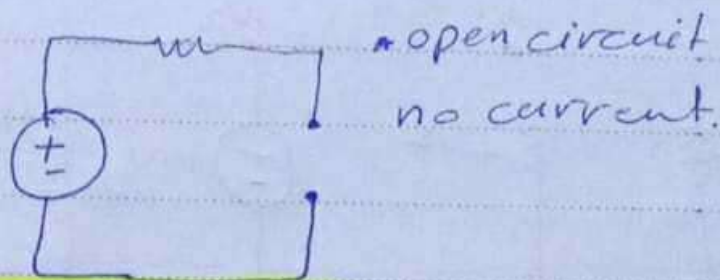 open circuit
no current.
+
-